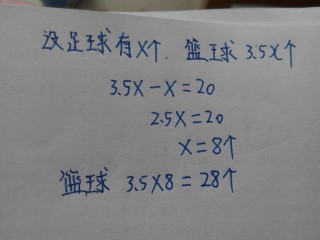 设足球有X个.篮球 3.5X个
3.5X-X=20
2.5X=20
X=8个
篮球 3.5X8=28个